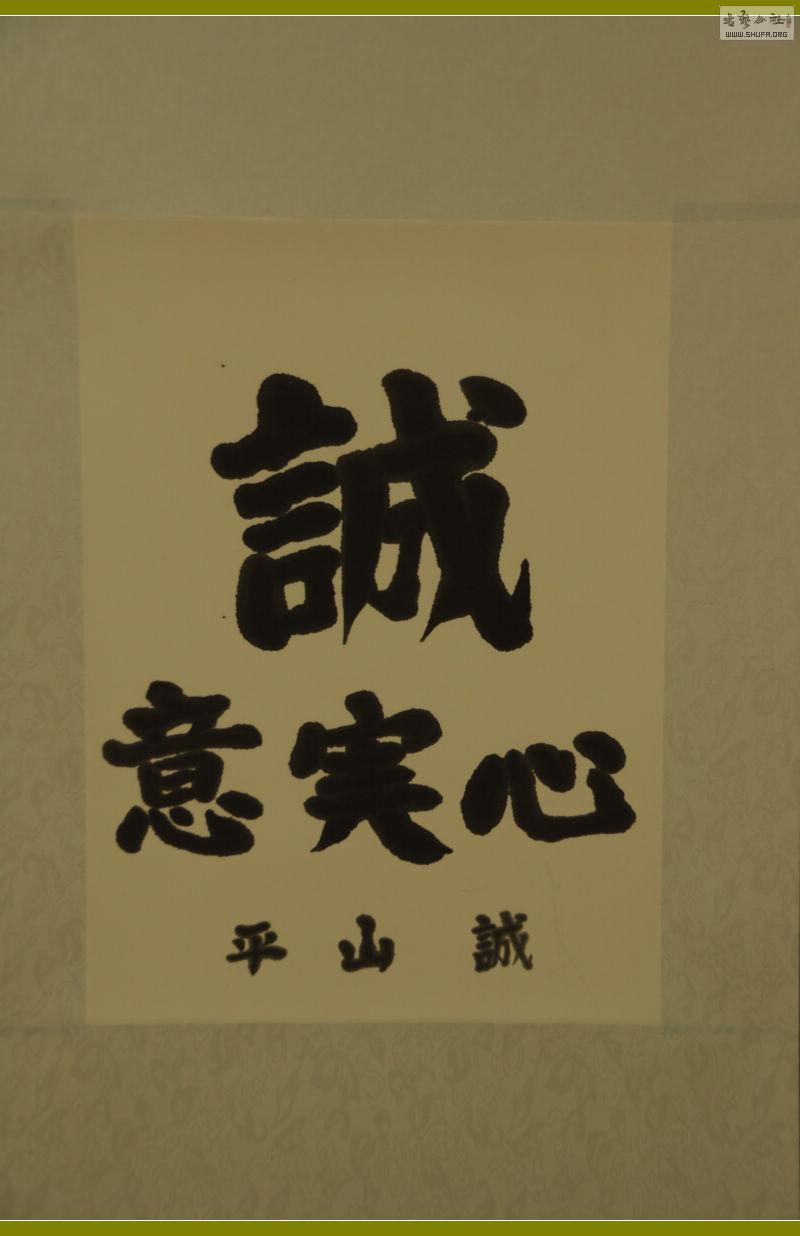 誠
意実心
平山 誠
書藝公社
WWW.SHUFA.ORG